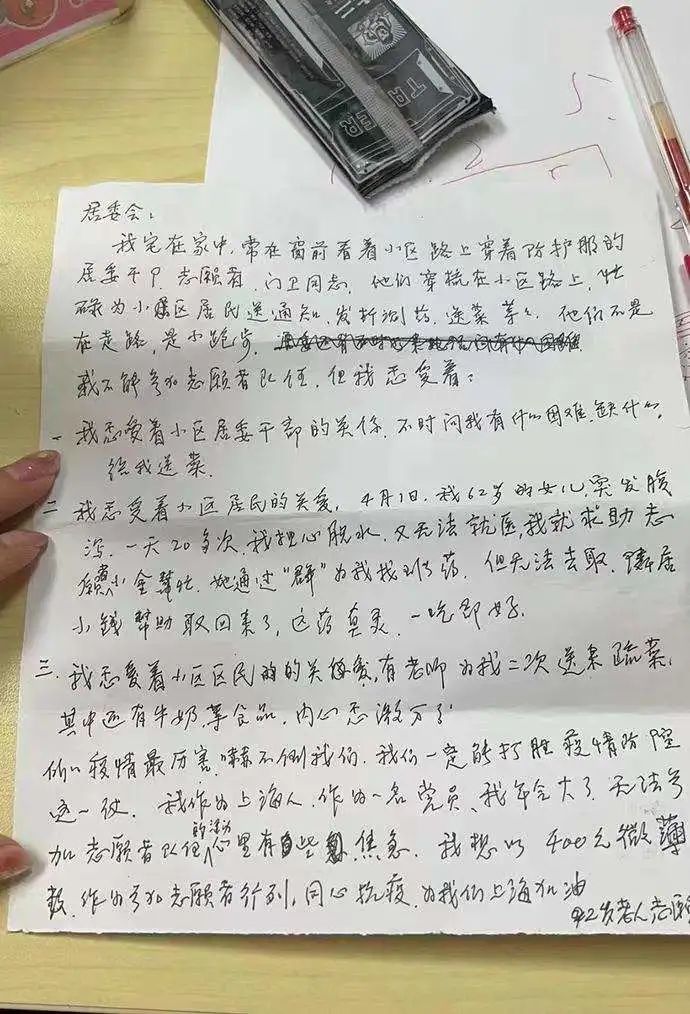 TR ER
居委会：
我宅在家中，常在窗前看着小区路上穿着防护服的
居委干部、志愿者、门卫同志，他们穿梭在小区路上，忙
碌为小区居民送通知、发抗测药、送菜等等。他们不是
在走路，是小跑步，
我不能参加志愿者队伍，但我感受着：
一 我感受着小区居委干部的关係，不时问我有什么困难、缺什么，
给我送菜。
二 我感受着小区居民的关爱，4月1日，我62岁的女儿突发腹
泻，一天20多次，我担心脱水，又无法就医，我就求助志
愿者小金帮忙，她通过“群”为我找到药，但无法去取，隣居
小钱帮助取回来了，这药真灵，一吃即好。
三．我感受着小区区民的的关爱，有老师为我二次送来蔬菜，
其中还有牛奶等食品，内心感激万分
疫情最厉害，嚇不倒我们，我们一定能打胜疫情防控
这一仗．我作为上海人，作为一名党员，我年令大了，无法参
加志愿者队伍的活动心里有些焦急．我想以400元微薄
数，作为参加志愿者行列，同心抗疫，为我们上海加油
92岁老人志愿